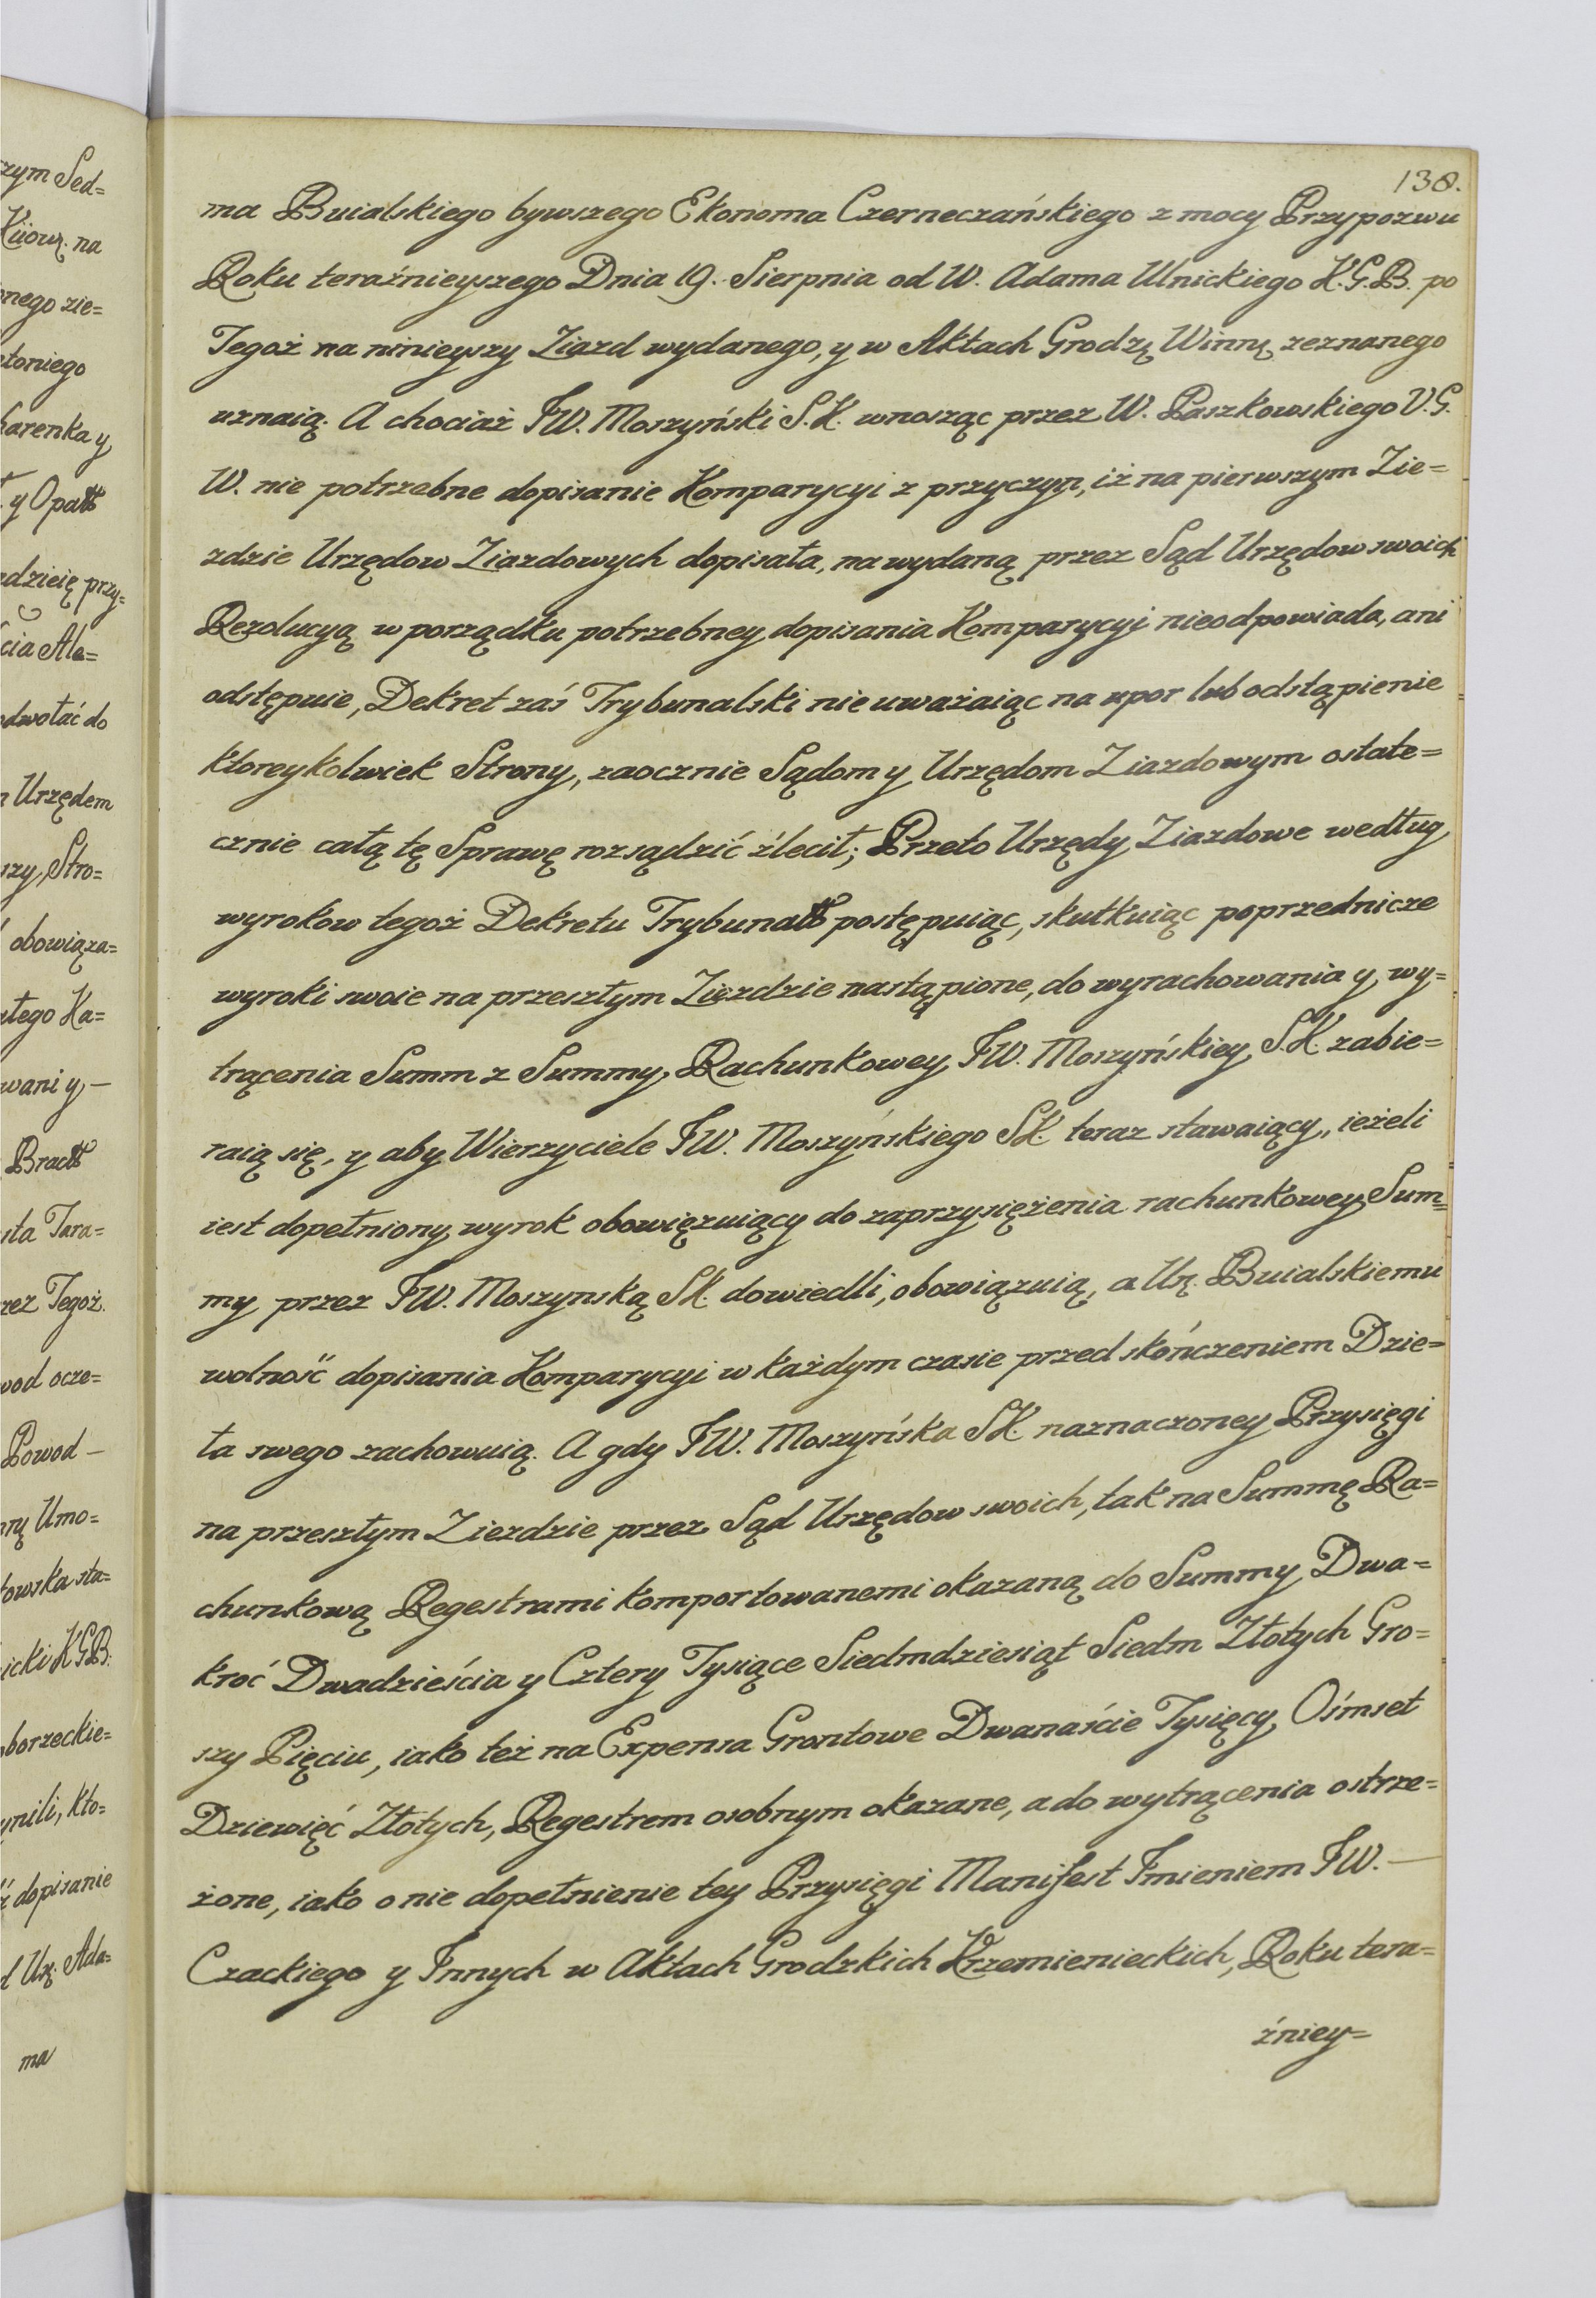 138.
ma Buialskiego bywszego Ekonoma Czerneczańskiego z mocy Przypozwu
Roku teraźnieyszego Dnia 19. Sierpnia od W. Adama Ulnickiego K.G.B. po
Tegoż na ninieyszy Ziazd wydanego, y w Aktach Grodz. Winn. zeznanego
uznaią. A chociaż JW. Moszyński S.K. wnosząc przez W. Paszkowskiego V.G.
W. nie potrzebne dopisanie Komparycyi z przyczyn, iż na pierwszym Zie=
zdzie Urzędow Ziazdowych dopisała, na wydaną przez Sąd Urzędow swoich
Rezolucyą w porządku potrzebney dopisania Komparycyi nieodpowiada, ani
odstępuie, Dekret zaś Trybunalski nie uważaiąc na upor lub odstąpienie
ktoreykolwiek Strony, zaocznie Sądom y Urzędom Ziazdowym ostate=
cznie całą tę Sprawę rozsądzić źlecił; Przeto Urzędy Ziazdowe według
wyrokow tegoż Dekretu Trybunall postępuiąc, skutkuiąc poprzednicze
wyroki swoie na przeszłym Ziezdzie nastąpione, do wyrachowania y wy=
trącenia Summ z Summy Rachunkowey JW. Moszyńskiey S.K. zabie=
raią się, y aby Wierzyciele JW. Moszyńskiego SK. teraz stawaiący, ieżeli
iest dopełniony wyrok obowięzuiący do zaprzysiężenia rachunkowey Sum=
my przez JW. Moszynską SK. dowiedli, obowiązuią, a Urz. Buialskiemu
wolność dopisania Komparycyi w każdym czasie przed skończeniem Dzie=
ła swego zachowuią. A gdy JW. Moszyńska SK. naznaczoney Przysięgi
na przeszłym Ziezdzie przez Sąd Urzędow swoich, tak na Summę Ra=
chunkową Regestrami komportowanemi okazaną do Summy Dwa=
kroć Dwadzieścia y Cztery Tysiące Siedmdziesiąt Siedm Złotych Gro=
szy Pięciu, iako też na Expensa Grontowe Dwanaście Tysięcy Ośmset
Dziewięć Złotych, Regestrem osobnym okazane, a do wytrącenia ostrze=
żone, iako o nie dopełnienie tey Przysięgi Manifest Jmieniem JW. —
Czackiego y Jnnych w Aktach Grodzkich Krzemienieckich, Roku tera=
źniey=